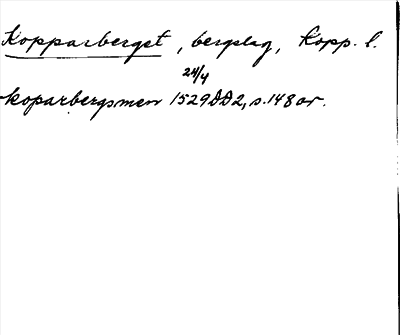 Kopparberget, bergslag, Kopp. l.
24/4
koparbergsmen 1529 DD2, s. 148 or.